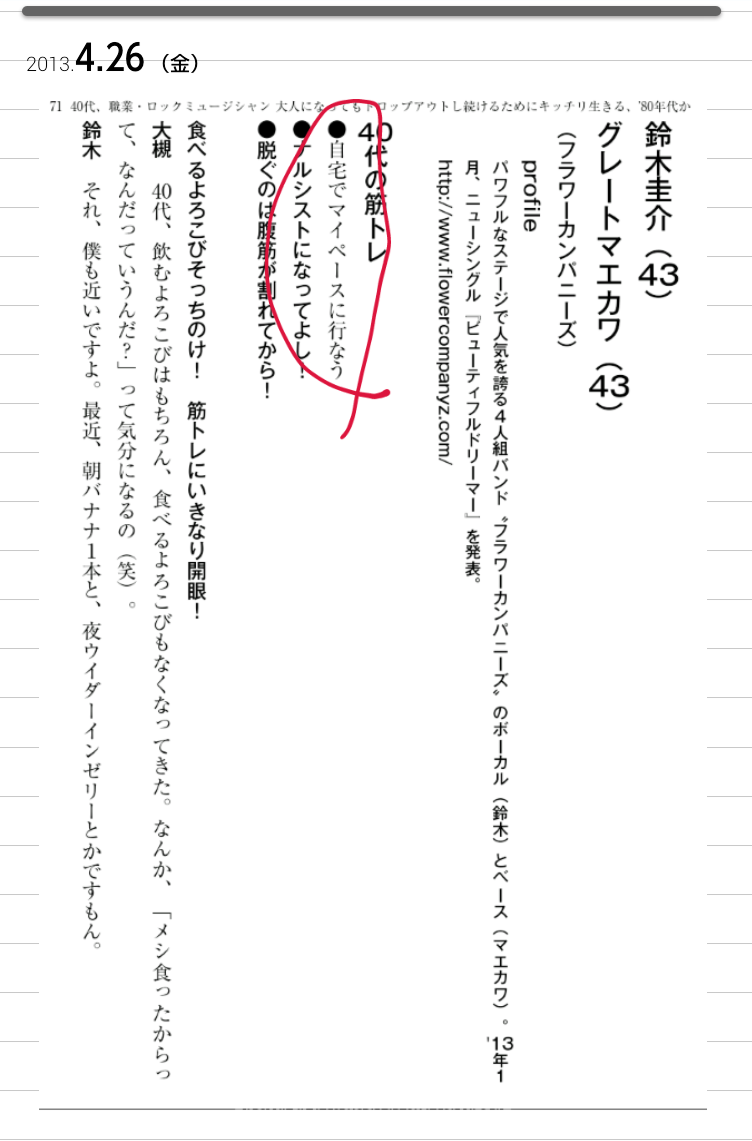 2013.4.26（金）
71 40代、職業・ロックミュージシャン 大人になってもドロップアウトし続けるためにキッチリ生きる、'80年代か
鈴木圭介（43）
グレートマエカワ（43）
（フラワーカンパニーズ）
profile
パワフルなステージで人気を誇る4人組バンド〝フラワーカンパニーズ〟のボーカル（鈴木）とベース（マエカワ）。'13年1
月、ニューシングル『ビューティフルドリーマー』を発表。
http://www.flowercompanyz.com/
40代の筋トレ
●自宅でマイペースに行なう
●ナルシストになってよし！
●脱ぐのは腹筋が割れてから！
食べるよろこびそっちのけ！　筋トレにいきなり開眼！
大槻　40代、飲むよろこびはもちろん、食べるよろこびもなくなってきた。なんか、「メシ食ったからっ
て、なんだっていうんだ？」って気分になるの（笑）。
鈴木　それ、僕も近いですよ。最近、朝バナナ1本と、夜ウイダーインゼリーとかですもん。